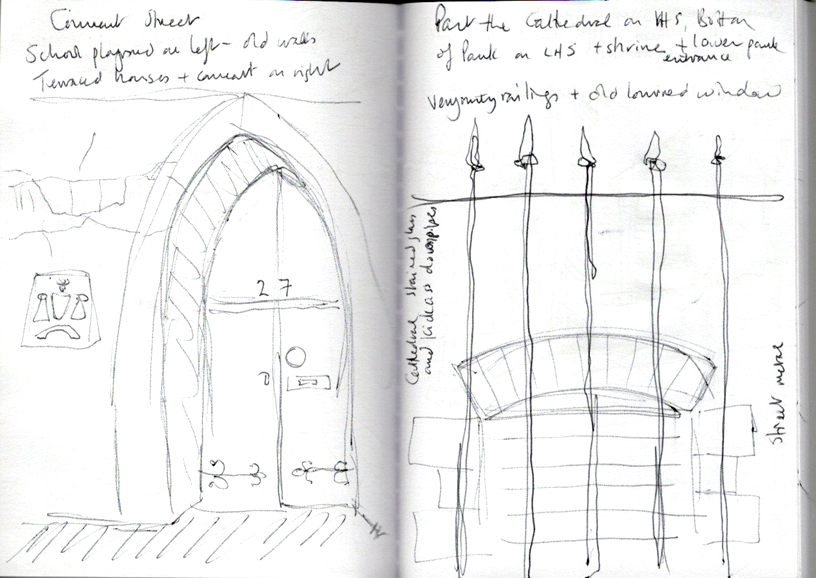 Convent Street
School playground on left - old walls
Terraced houses + convent on right
27
Past the Cathedral on RHS, Bottom
of Park on LHS + shrine + lower park
entrance
Very rusty railings + old louvred window
Cathedral stained glass
and downpipes
street metal